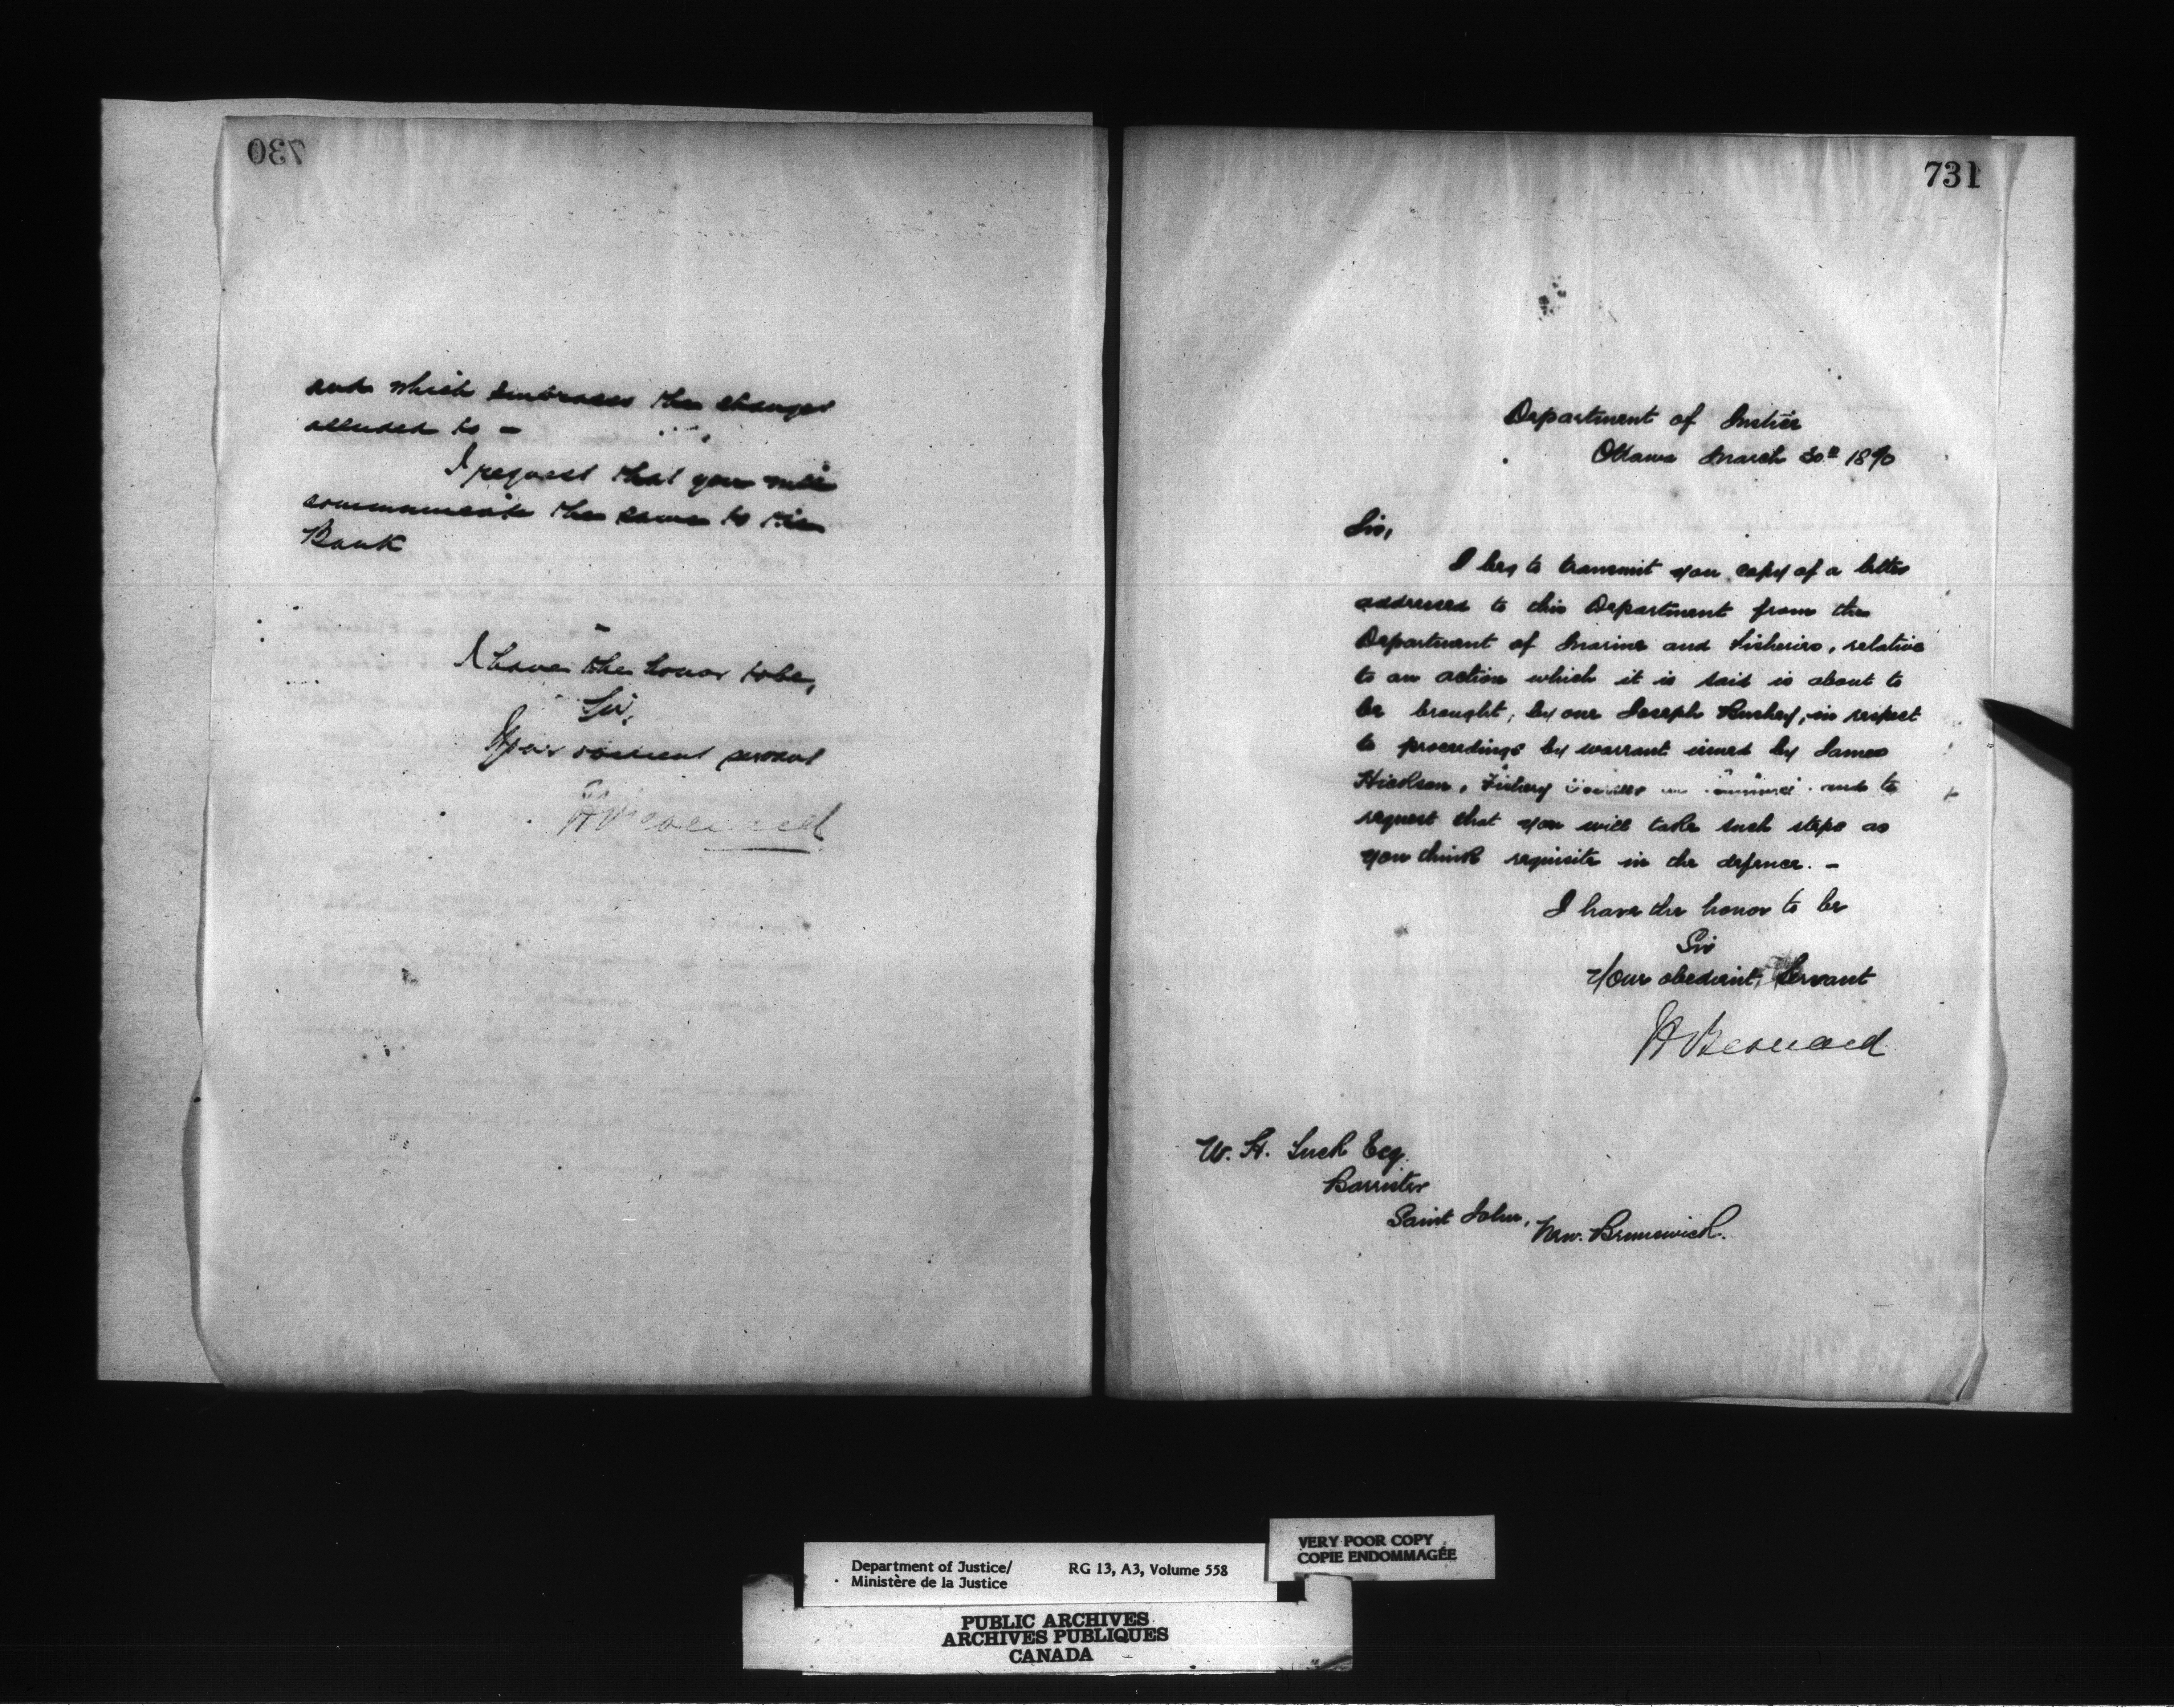 730
and which embraces the changes
alluded to –
I request that you will
communicate the same to the
Bank
I have the honor to be,
Sir,
Your obedient servant
H Bernard
731
Department of Justice
Ottawa March 30th 1870
Sir,
I beg to transmit you copy of a letter
addressed to this Department from the
Department of Marine and Fisheries, relative
to an action which it is said is about to
be brought, by one Joseph in respect
to proceedings by warrant issued by James
Hickson, Fishery and to
request that you will take such steps as
you think requisite in the defence. –
I have the honor to be
Sir
Your obedient Servant
H Bernard
W. H. Tuck Esq.
Barrister
Saint John, New Brunswick.
Department of Justice/ RG 13, A3, Volume 558
Ministère de la Justice
VERY POOR COPY
COPIE ENDOMMAGÉE
PUBLIC ARCHIVES
ARCHIVES PUBLIQUES
CANADA